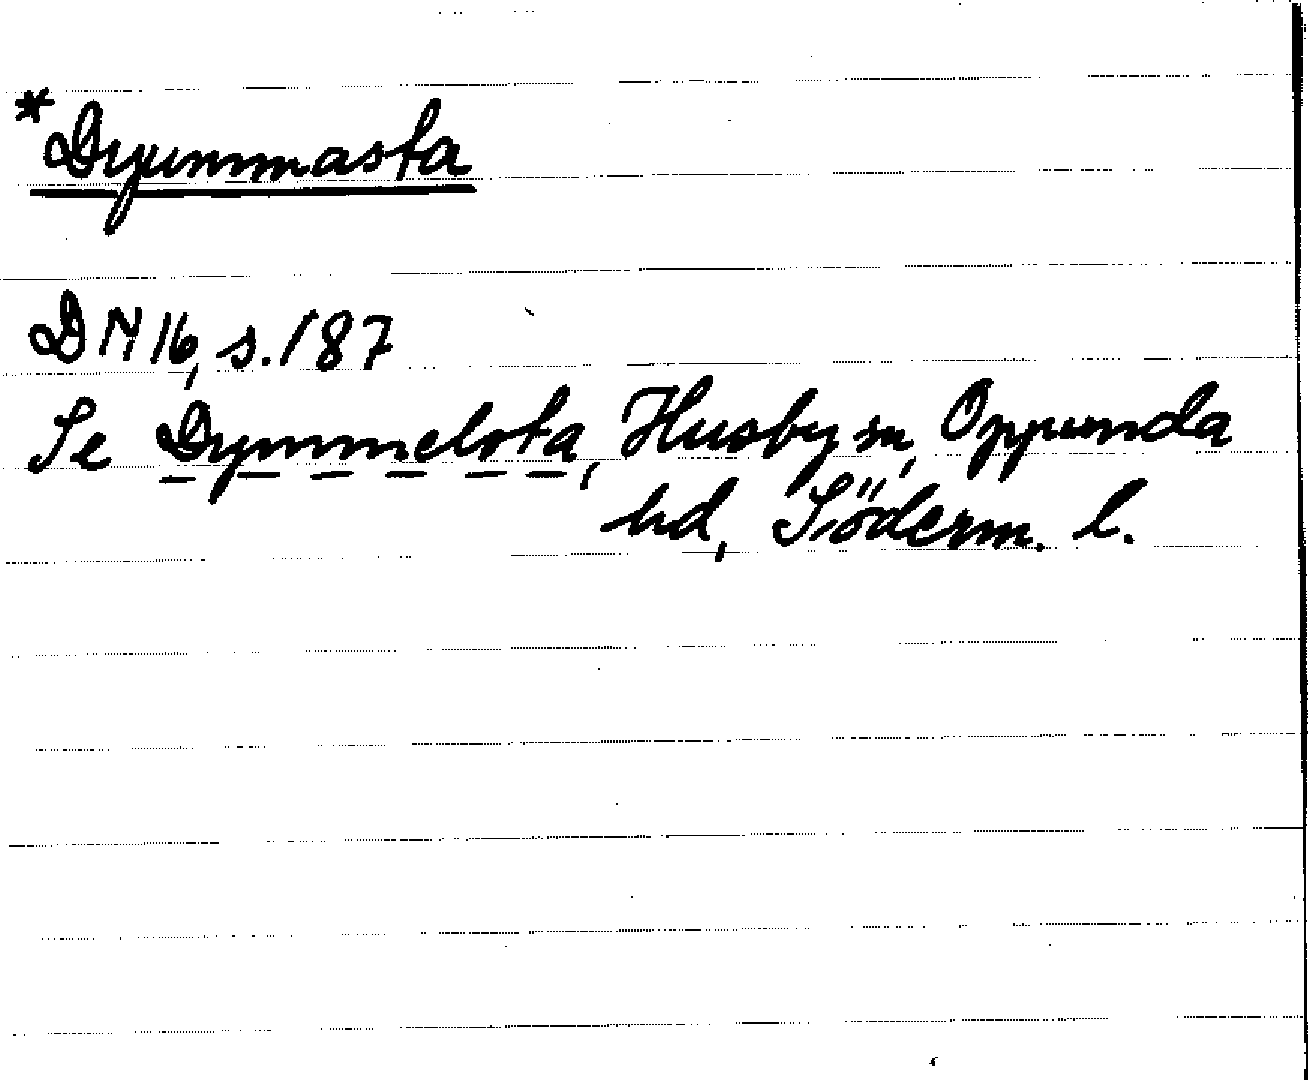 *Dyummasta
DN 16, s. 187
Se Dymmelsta, Husby sn, Oppunda
hd, Söderm. l.